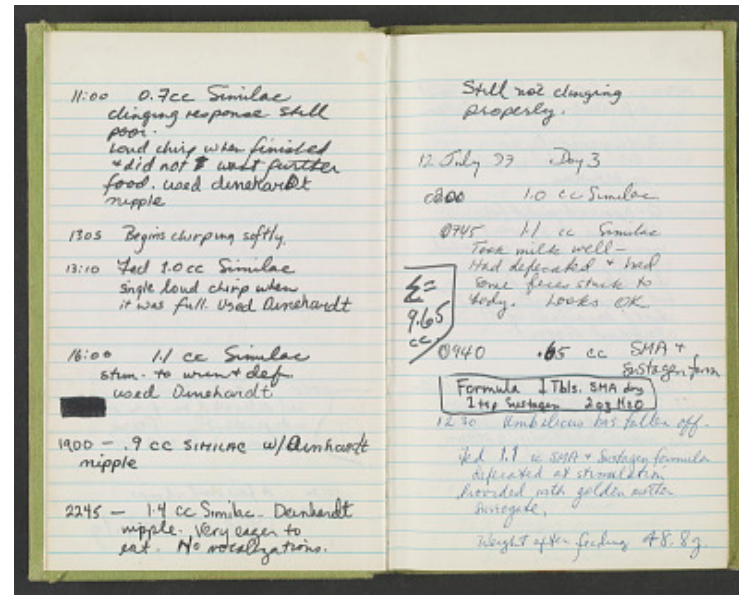 11:00 0.7cc Similac
clinging response still
poor.
Loud chirp when finished
+ did not want further
food. used dunehardt
nipple
1305 Begins chirping softly.
13:10 Fed 1.0cc Similac
single loud chirp when
it was full. Used Dunehardt
16:00 1.1 cc Similac
stim. to urin + def.
used Dunehardt
1900 – .9 cc SIMILAC w/ Deinhardt
nipple
2245 – 1.4 cc Similac. Deinhardt
nipple. Very eager to
eat. No vocalizations.
Still not clinging
properly.
12 July 77 Day 3
0200 1.0 cc Similac
0745 1.1 cc Similac
Took milk well –
Had defecated + had
some feces stuck to
body. Looks OK
Σ=
9.65
cc
0940 .65 cc SMA +
Sustagen form
Formula 1 Tbls. SMA dry
1 tsp Sustagen 2oz H2O
1230 Umbilicus has fallen off.
Fed 1.1 cc SMA + Sustagen formula
defecated at stimulation
Provided with golden
surrogate.
Weight after feeding 48.8g.